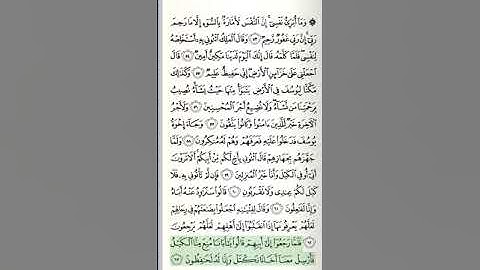 ۞ وَمَا أُبَرِّئُ نَفْسِي إِنَّ النَّفْسَ لَأَمَّارَةٌ بِالسُّوءِ إِلَّا مَا رَحِمَ
رَبِّي إِنَّ رَبِّي غَفُورٌ رَحِيمٌ ٥٣ وَقَالَ الْمَلِكُ ائْتُونِي بِهِ أَسْتَخْلِصْهُ
لِنَفْسِي فَلَمَّا كَلَّمَهُ قَالَ إِنَّكَ الْيَوْمَ لَدَيْنَا مَكِينٌ أَمِينٌ ٥٤ قَالَ
اجْعَلْنِي عَلَى خَزَائِنِ الْأَرْضِ إِنِّي حَفِيظٌ عَلِيمٌ ٥٥ وَكَذَلِكَ
مَكَّنَّا لِيُوسُفَ فِي الْأَرْضِ يَتَبَوَّأُ مِنْهَا حَيْثُ يَشَاءُ نُصِيبُ
بِرَحْمَتِنَا مَنْ نَشَاءُ وَلَا نُضِيعُ أَجْرَ الْمُحْسِنِينَ ٥٦ وَلَأَجْرُ
الْآخِرَةِ خَيْرٌ لِلَّذِينَ آمَنُوا وَكَانُوا يَتَّقُونَ ٥٧ وَجَاءَ إِخْوَةُ
يُوسُفَ فَدَخَلُوا عَلَيْهِ فَعَرَفَهُمْ وَهُمْ لَهُ مُنْكِرُونَ ٥٨ وَلَمَّا
جَهَّزَهُمْ بِجَهَازِهِمْ قَالَ ائْتُونِي بِأَخٍ لَكُمْ مِنْ أَبِيكُمْ أَلَا تَرَوْنَ
أَنِّي أُوفِي الْكَيْلَ وَأَنَا خَيْرُ الْمُنْزِلِينَ ٥٩ فَإِنْ لَمْ تَأْتُونِي بِهِ فَلَا
كَيْلَ لَكُمْ عِنْدِي وَلَا تَقْرَبُونِ ٦٠ قَالُوا سَنُرَاوِدُ عَنْهُ أَبَاهُ
وَإِنَّا لَفَاعِلُونَ ٦١ وَقَالَ لِفِتْيَانِهِ اجْعَلُوا بِضَاعَتَهُمْ فِي رِحَالِهِمْ
لَعَلَّهُمْ يَعْرِفُونَهَا إِذَا انْقَلَبُوا إِلَى أَهْلِهِمْ لَعَلَّهُمْ يَرْجِعُونَ
٦٢ فَلَمَّا رَجَعُوا إِلَى أَبِيهِمْ قَالُوا يَا أَبَانَا مُنِعَ مِنَّا الْكَيْلُ
فَأَرْسِلْ مَعَنَا أَخَانَا نَكْتَلْ وَإِنَّا لَهُ لَحَافِظُونَ ٦٣